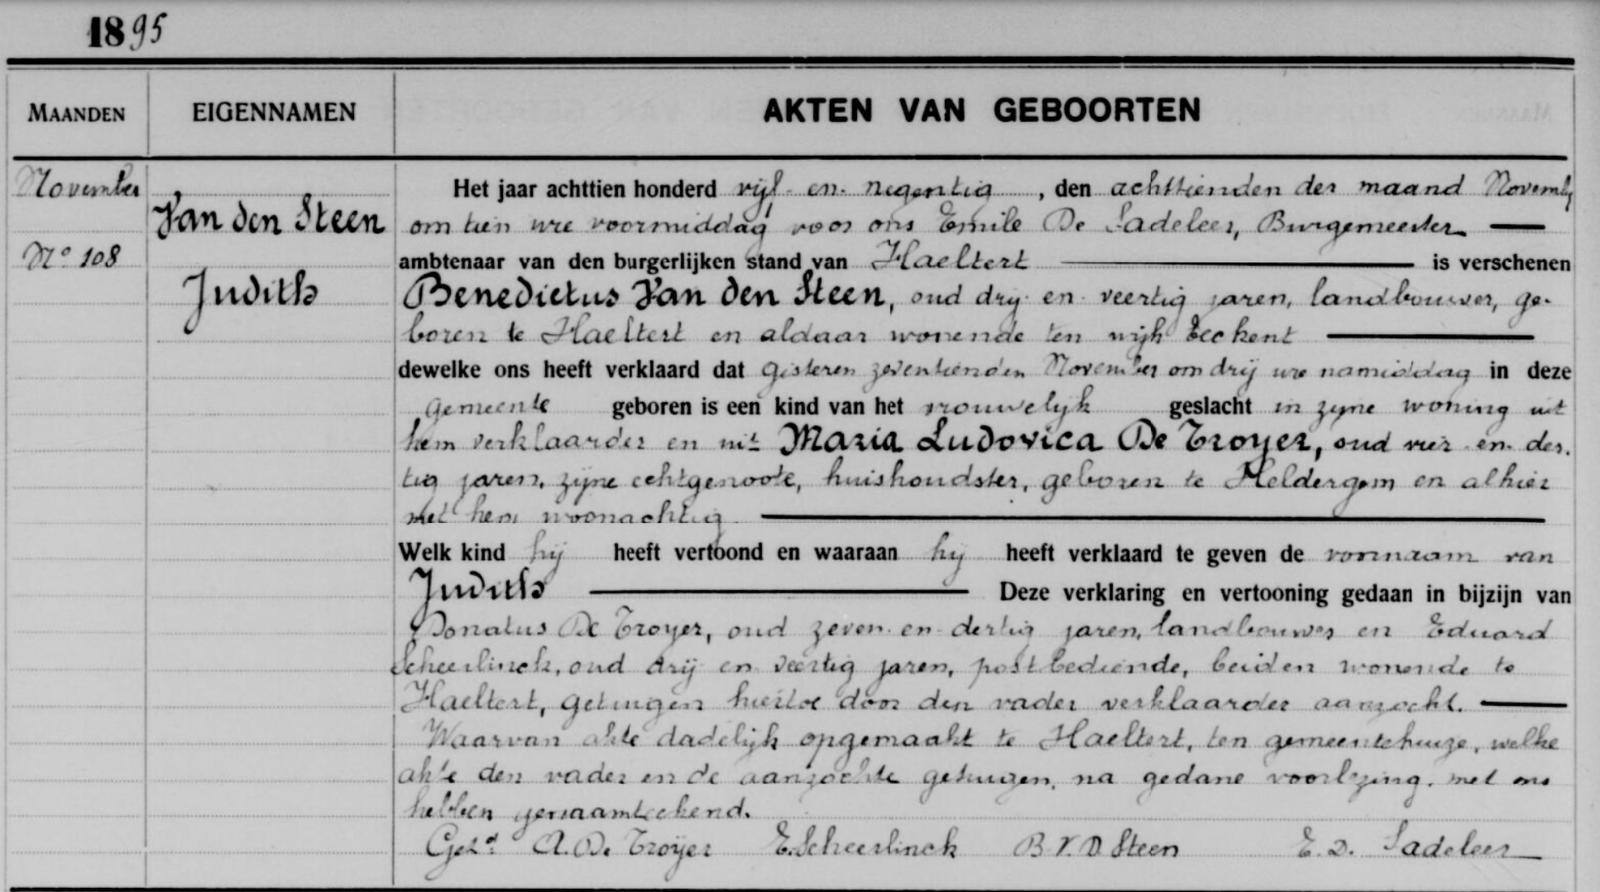 1895
MAANDEN
EIGENNAMEN
AKTEN VAN GEBOORTEN
November
Nº 108
Van den Steen
Judith
Het jaar achttien honderd vijf en negentig, den achttienden der maand November
om tien ure voormiddag voor ons Emile De Sadeleer, Burgemeester
ambtenaar van den burgerlijken stand van Haeltert is verschenen
Benedictus Van den Steen, oud dry en veertig jaren, landbouwer, ge-
boren te Haeltert en aldaar wonende ten wijk Eeckent
dewelke ons heeft verklaard dat gisteren zeventienden November om drij ure namiddag in deze
gemeente geboren is een kind van het vrouwelijk geslacht in zyne woning uit
hem verklaarder en uit Maria Ludovica De Troyer, oud vier en der-
tig jaren, zijne echtgenoote, huishoudster, geboren te Heldergem en alhier
met hem woonachtig
Welk kind hij heeft vertoond en waaraan hij heeft verklaard te geven de voornaam van
Judith Deze verklaring en vertooning gedaan in bijzijn van
Donatus De Troyer, oud zeven en dertig jaren, landbouwer en Eduard
Scheerlinck, oud drij en veertig jaren, postbediende, beiden wonende te
Haeltert, getuigen hiertoe door den vader verklaarder aanzocht.
Waarvan akte dadelijk opgemaakt te Haeltert, ten gemeentehuize, welke
akte den vader en de aanzochte getuigen, na gedane voorlezing, met ons
hebben genaamteekend.
Getd. A. De Troyer E. Scheerlinck B. V. D. Steen E. D. Sadeleer